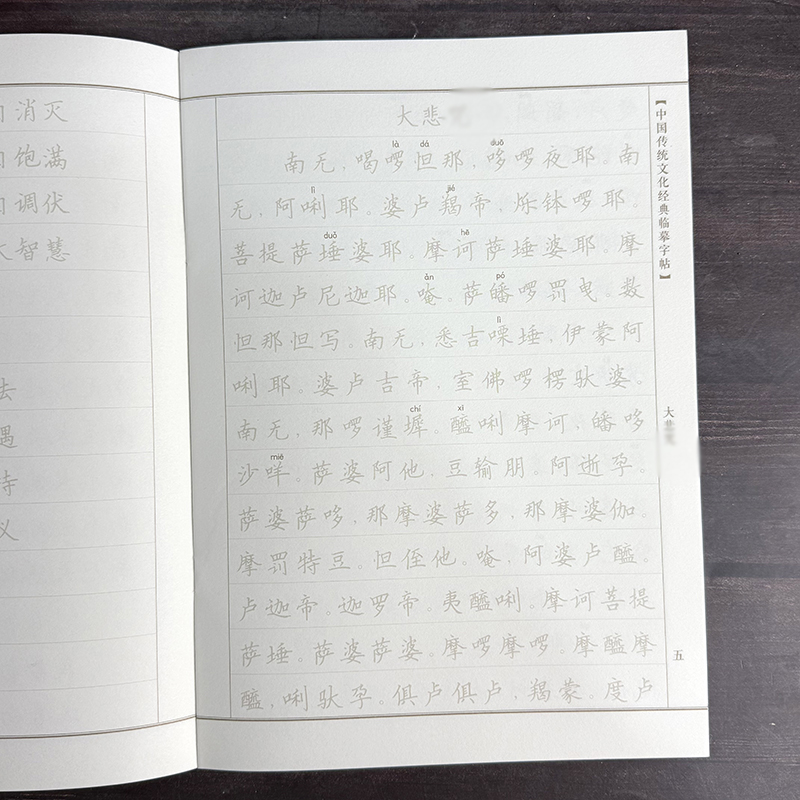 消灭
饱满
调伏
大智慧
去
遇
持
义
大悲
là dá duō
南无，喝啰怛那，哆啰夜耶。南
lì jié
无，阿唎耶。婆卢羯帝，烁钵啰耶。
duǒ hē
菩提萨埵婆耶。摩诃萨埵婆耶。摩
ǎn pó
诃迦卢尼迦耶。唵。萨皤啰罚曳。数
lì
怛那怛写。南无，悉吉嘌埵，伊蒙阿
唎耶。婆卢吉帝，室佛啰楞驮婆。
chí xī
南无，那啰谨墀。醯唎摩诃，皤哆
miē
沙咩。萨婆阿他，豆输朋。阿逝孕。
萨婆萨哆，那摩婆萨多，那摩婆伽。
摩罚特豆。怛侄他。唵，阿婆卢醯。
卢迦帝。迦罗帝。夷醯唎。摩诃菩提
萨埵。萨婆萨婆。摩啰摩啰。摩醯摩
醯，唎驮孕。俱卢俱卢，羯蒙。度卢
【中国传统文化经典临摹字帖】
大悲
五